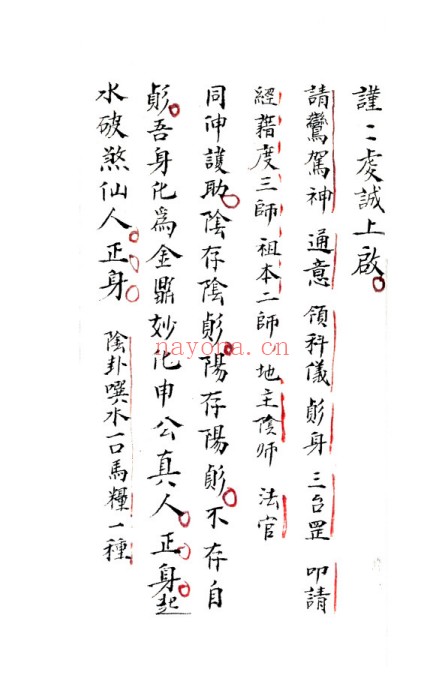 謹〻虔誠上啟
請鸞駕神 通意 領科儀 䠶身 三台罡 叩請
經籍度三師 祖本二師 地主陰师 法官
同伸護助陰存陰䠶陽存陽䠶不存自
䠶吾身化為金鼎妙化申公真人正身起
水破煞仙人正身 陰卦噀水一口馬糧一種
nayona.cn